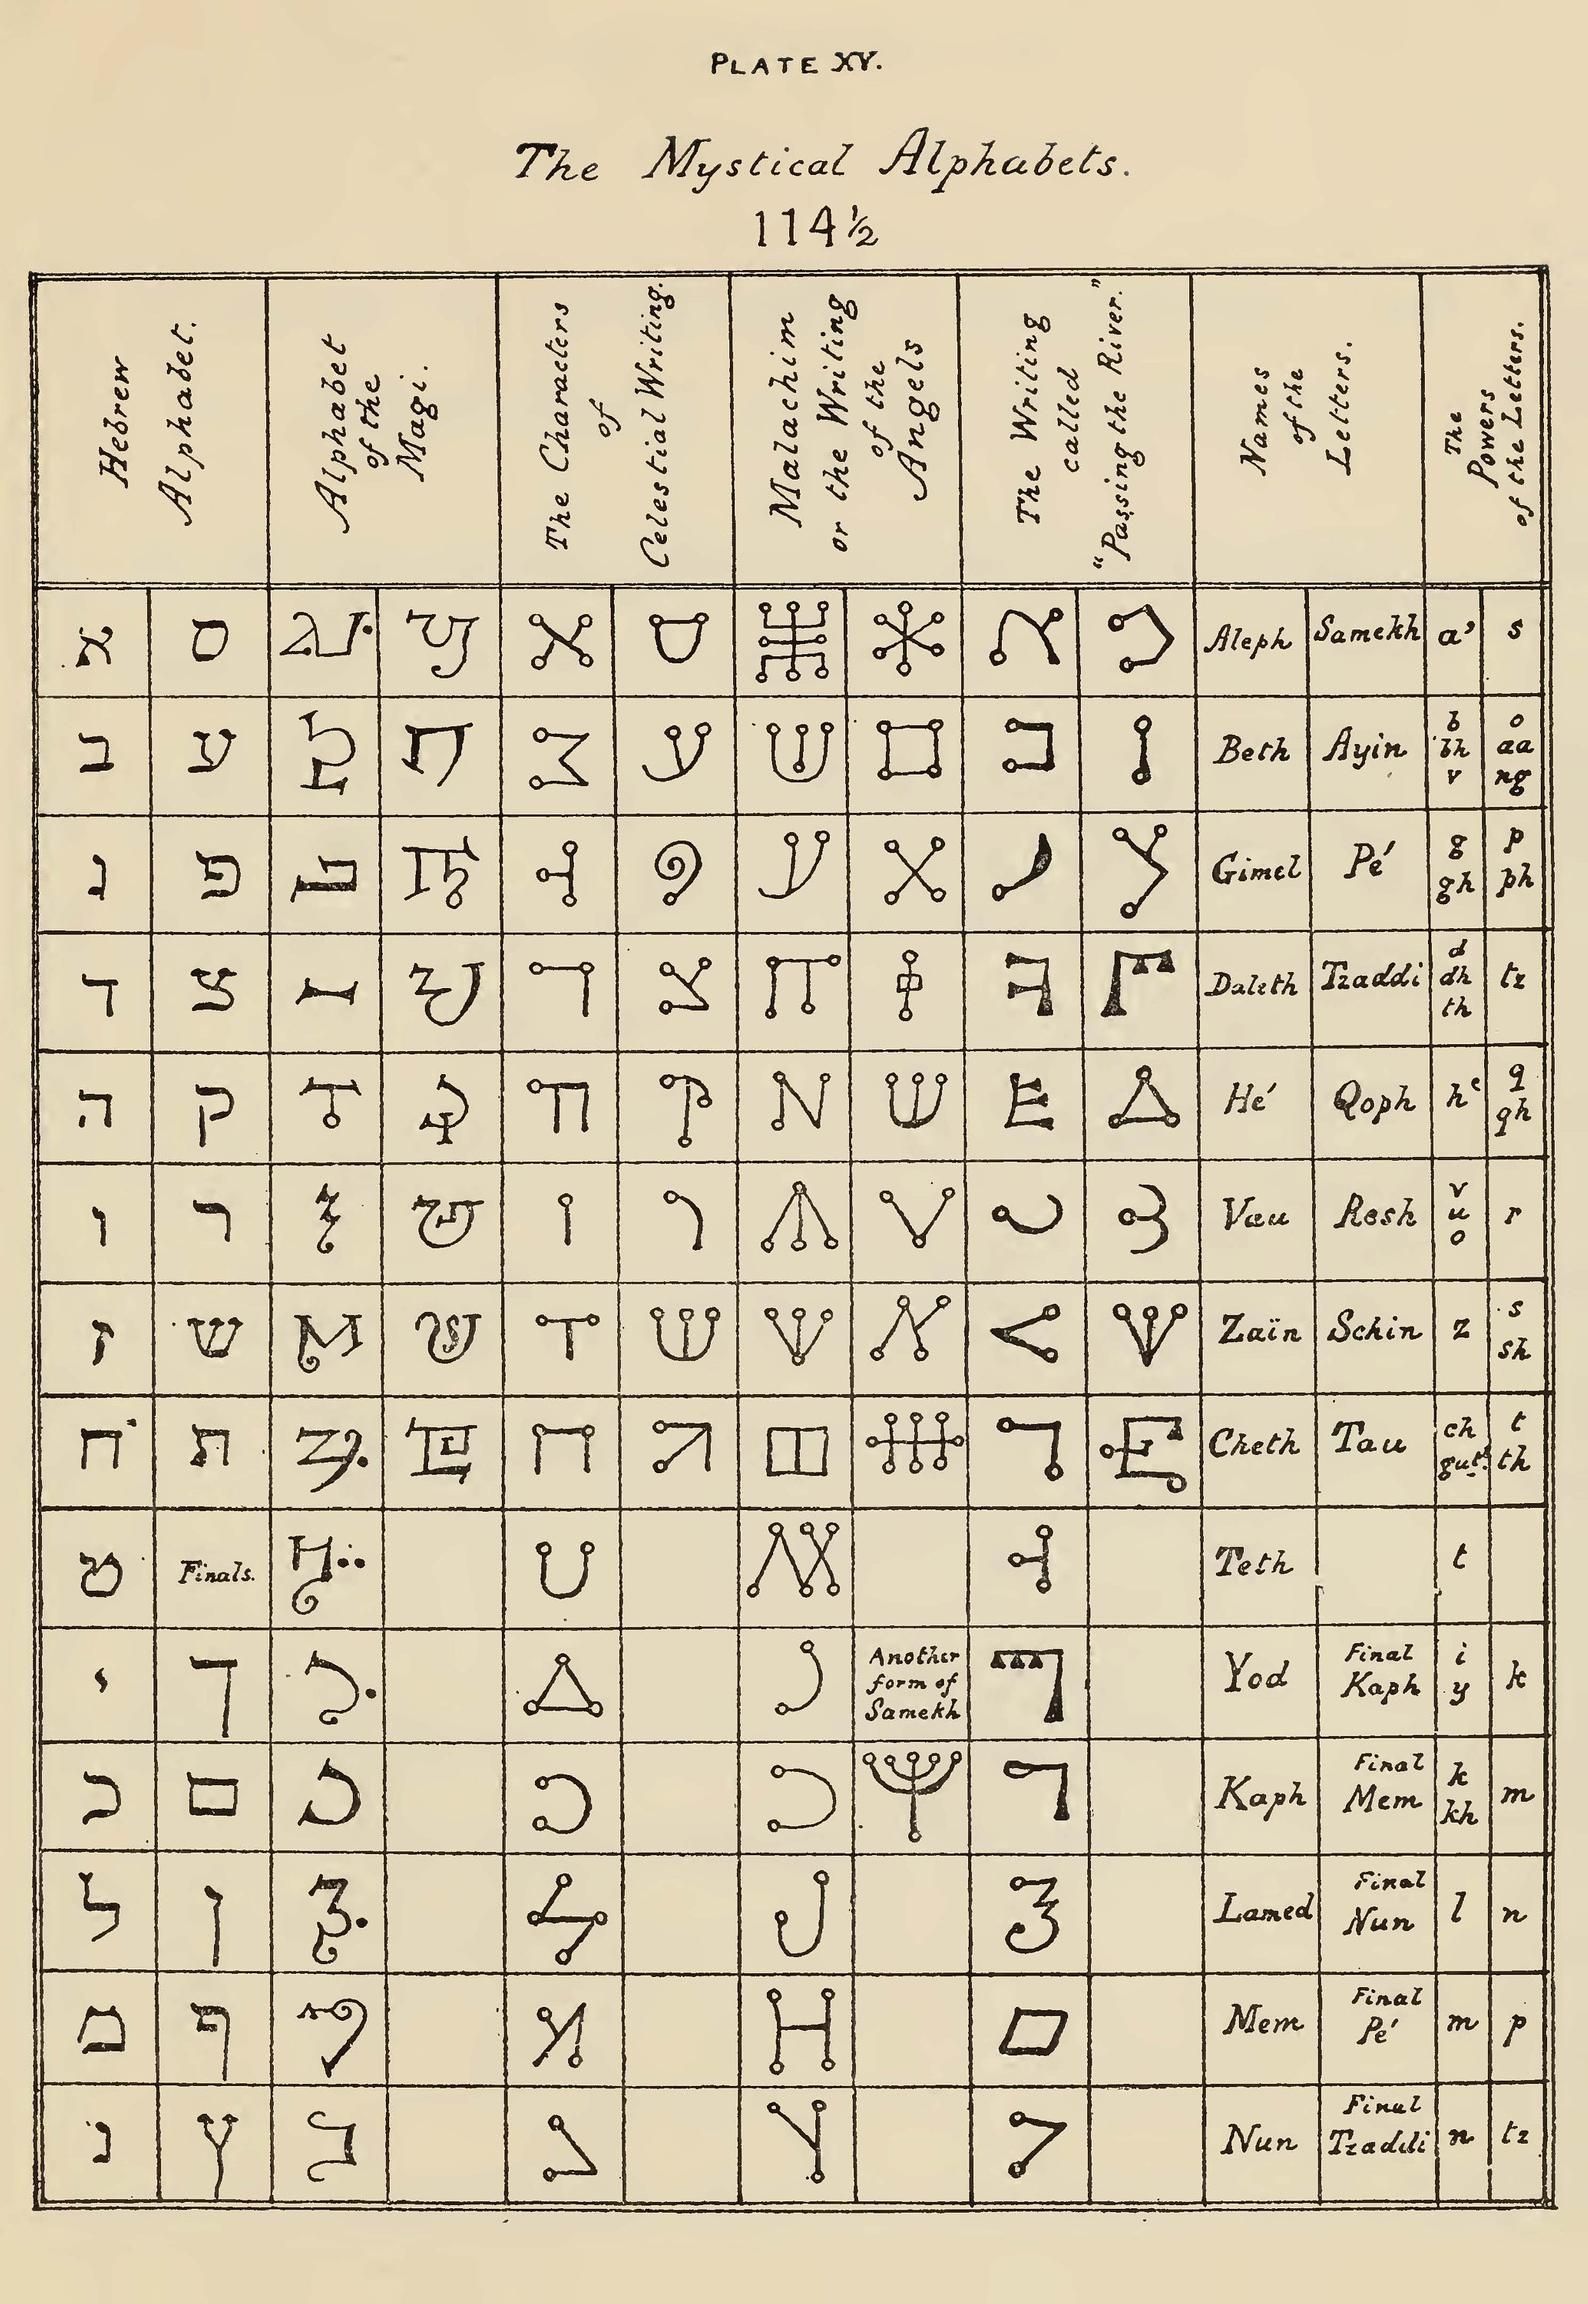 PLATE XV.
The Mystical Alphabets.
114½
Hebrew Alphabet.
Alphabet of the Magi.
The Characters of Celestial Writing.
Malachim or the Writing of the Angels
The Writing called "Passing the River."
Names of the Letters.
The Powers of the Letters.
א ס Aleph Samekh a' s
ב ע Beth Ayin b bh v o aa ng
ג פ Gimel Pé g gh p ph
ד צ Daleth Tzaddi d dh th tz
ה ק Hé Qoph h' q qh
ו ר Vau Resh v u o r
ז ש Zaïn Schin z s sh
ח ת Cheth Tau ch gutt. t th
ט Finals. Teth t
י ך Another form of Samekh Yod Final Kaph i y k
כ ם Kaph Final Mem k kh m
ל ן Lamed Final Nun l n
מ ף Mem Final Pé m p
נ ץ Nun Final Tzaddi n tz